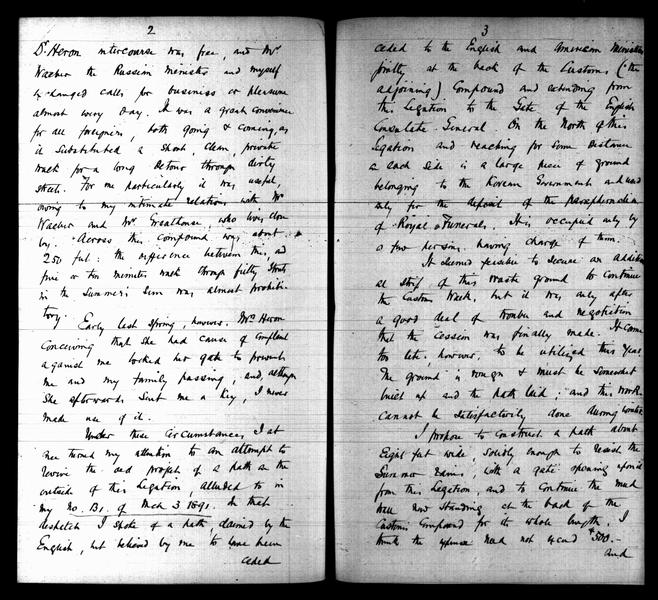 2
Dr. Heron intercourse was free, and Mr.
Waeber the Russian Minister and myself
exchanged calls for business or pleasure
almost every day. It was a great convenience
for all foreigners, both going & coming, as
it substituted a short, clean, private
walk for a long detour through dirty
street. For me particularly it was useful,
owing to my intimate relations with Mr
Waeber and Mr. Greathouse, who lives close
by. Across this compound was about
250 feet: the difference between this, and
five or ten minutes walk through filthy streets
in the Summer's sun was almost prohibi-
tory.
Early last Spring, however, Mrs Heron
conceiving that she had cause of complaint
against me locked her gate to prevent
me and my family passing, and, although
she afterwards sent me a key, I never
made use of it.
Under these circumstances I at
once turned my attention to an attempt to
revive the old project of a path on the
outside of this Legation, alluded to in
my No. 131. of Mch 3. 1891. In that
despatch I spoke of a path claimed by the
English, but believed by me to have been
ceded
3
ceded to the English and American Ministers
jointly at the back of the Customs (the
adjoining) Compound and extending from
this Legation to the Gate of the English
Consulate General. On the North of this
Legation and reaching for some distance
on each side is a large piece of ground
belonging to the Korean Government and used
only for the deposit of the Paraphernalia
of Royal Funerals. It is occupied only by
a few persons having charge of them.
It seemed feasible to secure an addition-
al strip of this waste ground to continue
the Custom Walk, but it was only after
a good deal of trouble and negotiation
that the cession was finally made. It came
too late, however, to be utilized this year.
The ground is rough & must be somewhat
built up and the path laid; and this work
cannot be satisfactorily done during winter.
I propose to construct a path about
Eight feet wide, solidly enough to resist the
Summer rains, with a gate opening
from this Legation, and to continue the mud
wall now standing at the back of the
Customs Compound for its whole length. I
think the expense need not exceed $500.-
and